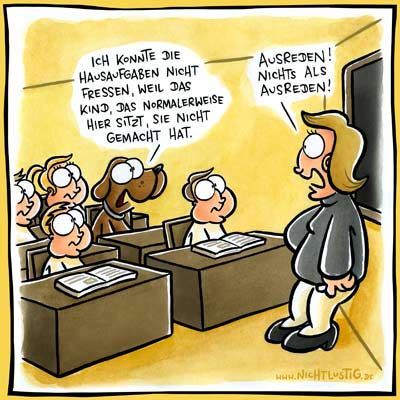 ICH KONNTE DIE
HAUSAUFGABEN NICHT
FRESSEN, WEIL DAS
KIND, DAS NORMALERWEISE
HIER SITZT, SIE NICHT
GEMACHT HAT.
AUSREDEN!
NICHTS ALS
AUSREDEN!
WWW.NICHTLUSTIG.DE